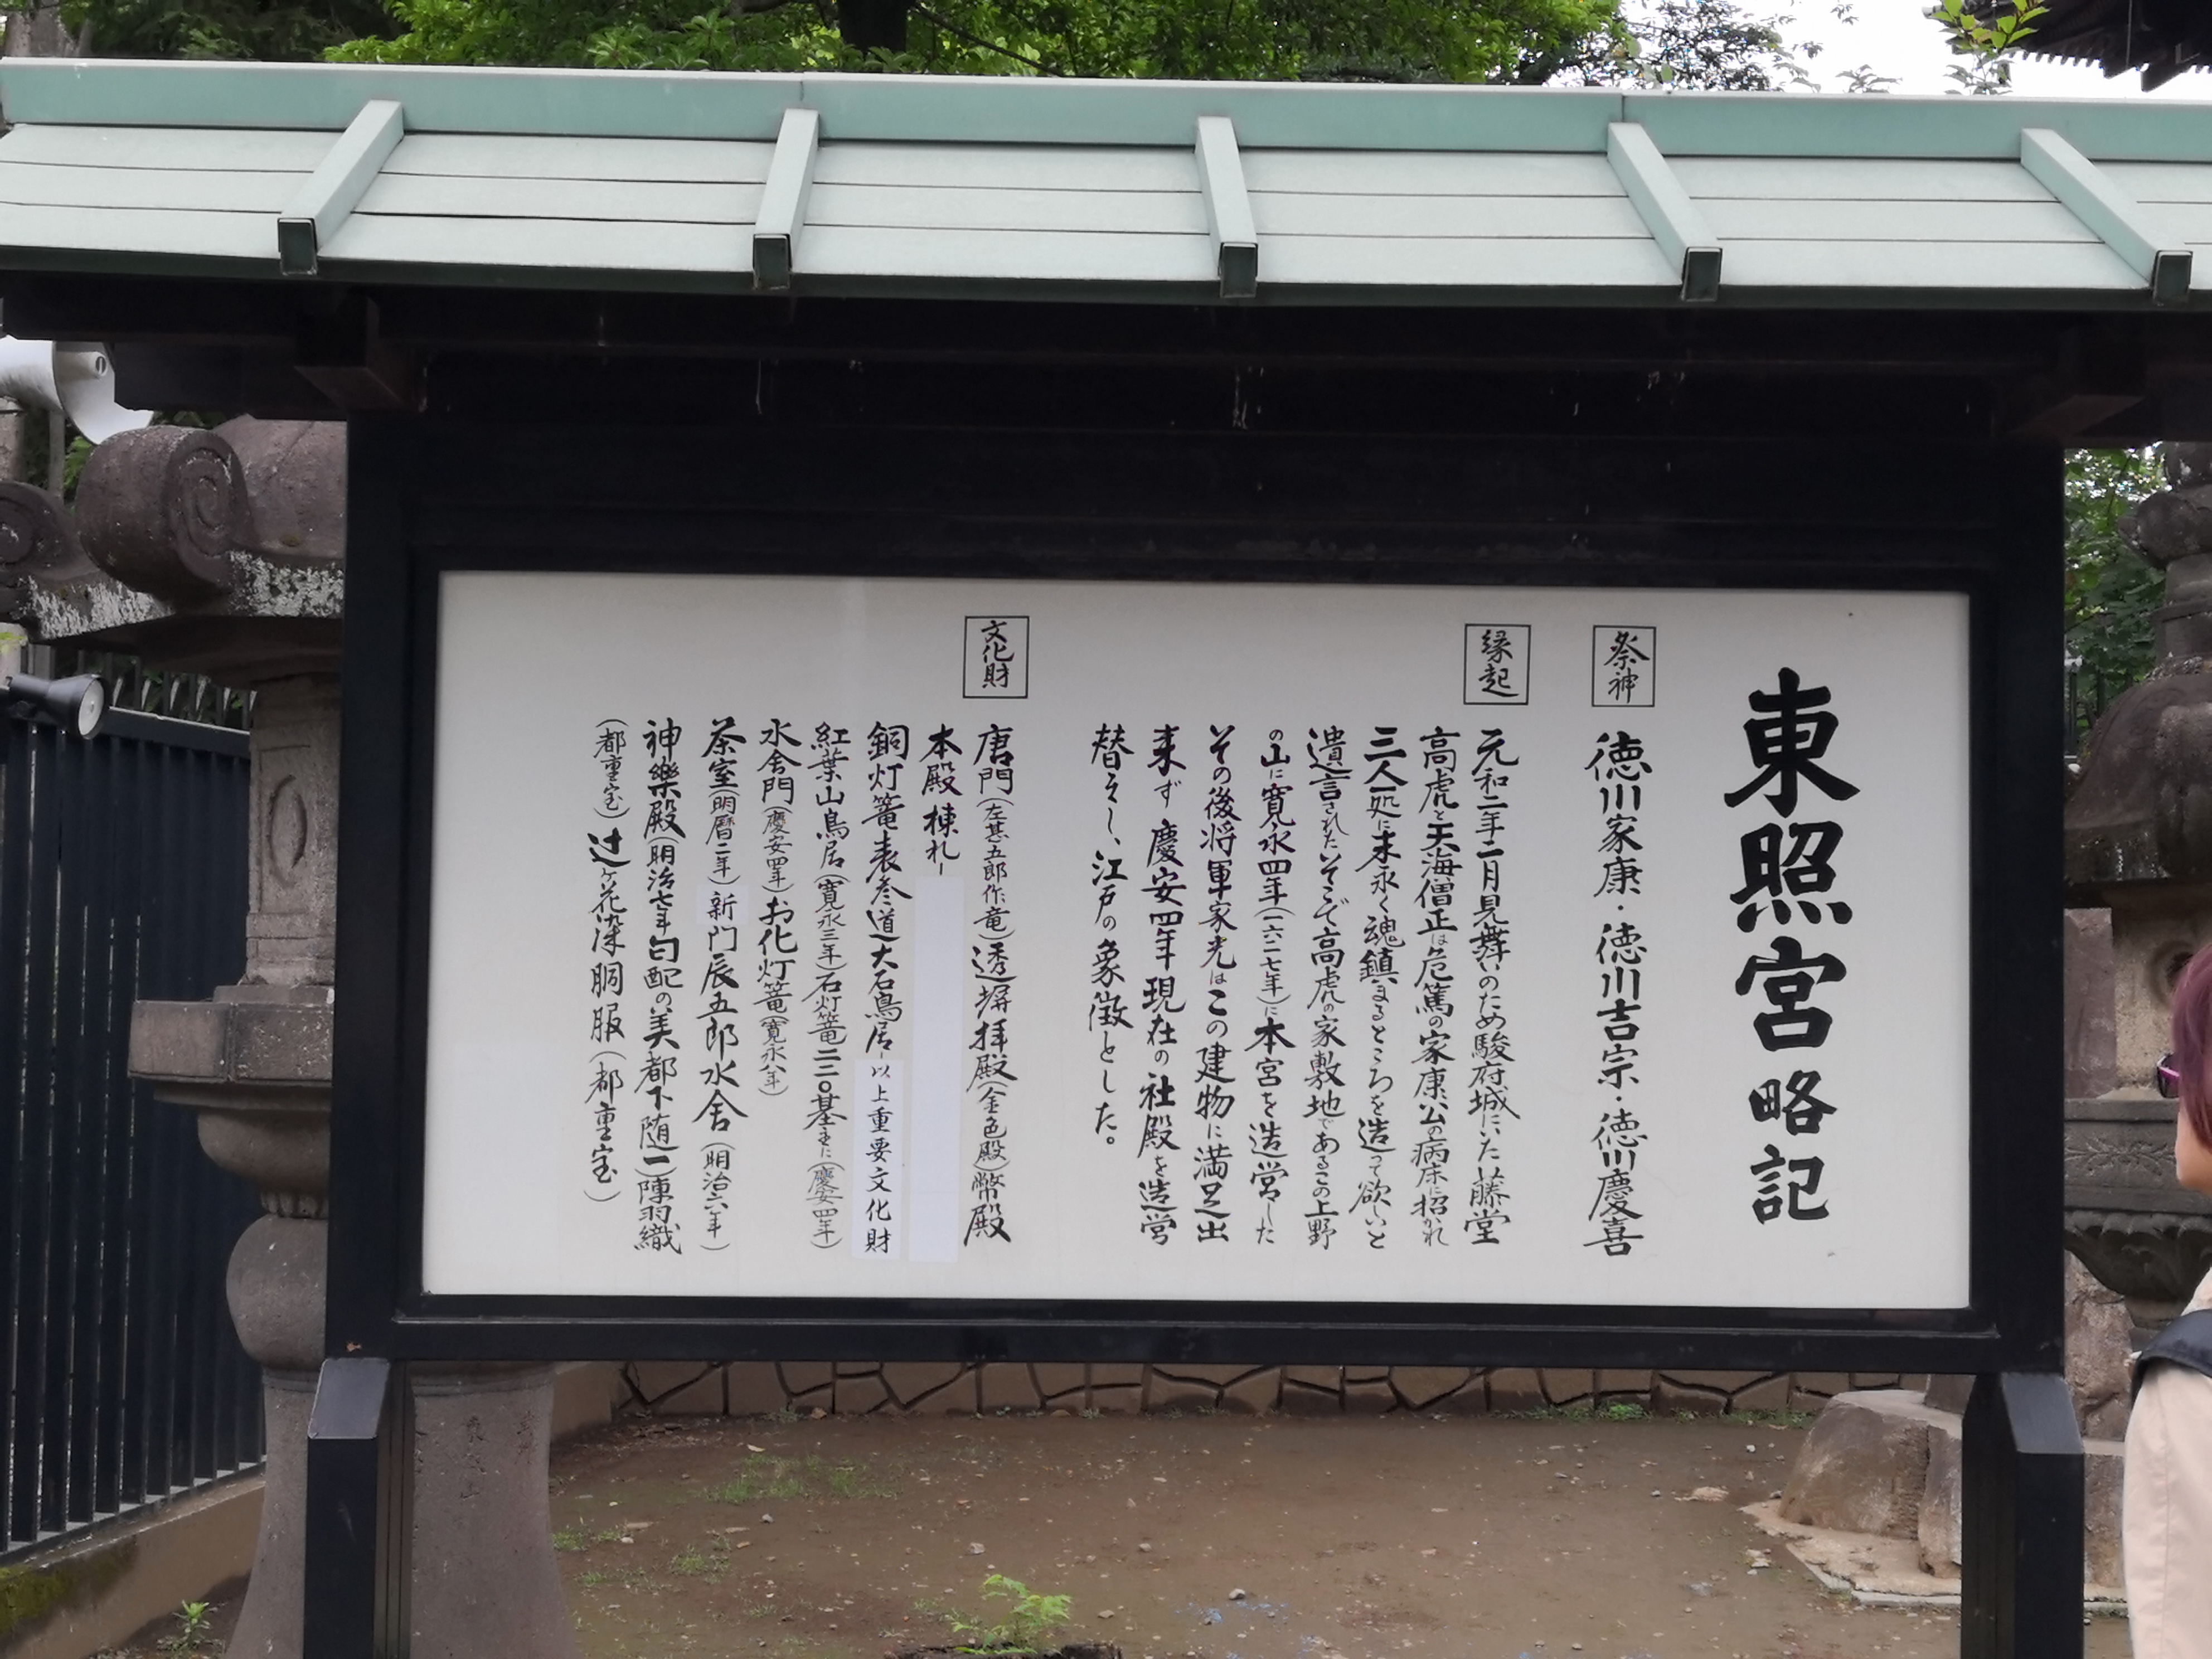 東照宮略記
祭神
徳川家康・徳川吉宗・徳川慶喜
縁起
元和二年二月見舞いのため駿府城にいた藤堂
高虎と天海僧正は危篤の家康公の病床に招かれ
三人一処に末永く魂鎮まるところを造って欲しいと
遺言されたそこで高虎の家敷地であるこの上野
の山に寛永四年(一六二七年)に本宮を造営した
その後将軍家光はこの建物に満足出
来ず慶安四年現在の社殿を造営
替えし、江戸の象徴とした。
文化財
唐門(左甚五郎作竜)透塀拝殿(金色殿)幣殿
本殿棟札―
銅灯篭表参道大石鳥居―以上重要文化財
紅葉山鳥居(寛永三年)石灯篭二二〇基主に(慶安四年)
水舎門(慶安四年)お化灯篭(寛永八年)
茶室(明暦二年)新門辰五郎水舎(明治六年)
神樂殿(明治七年匂配の美都下随一)陣羽織
(都重宝)辻ヶ花染胴服(都重宝)